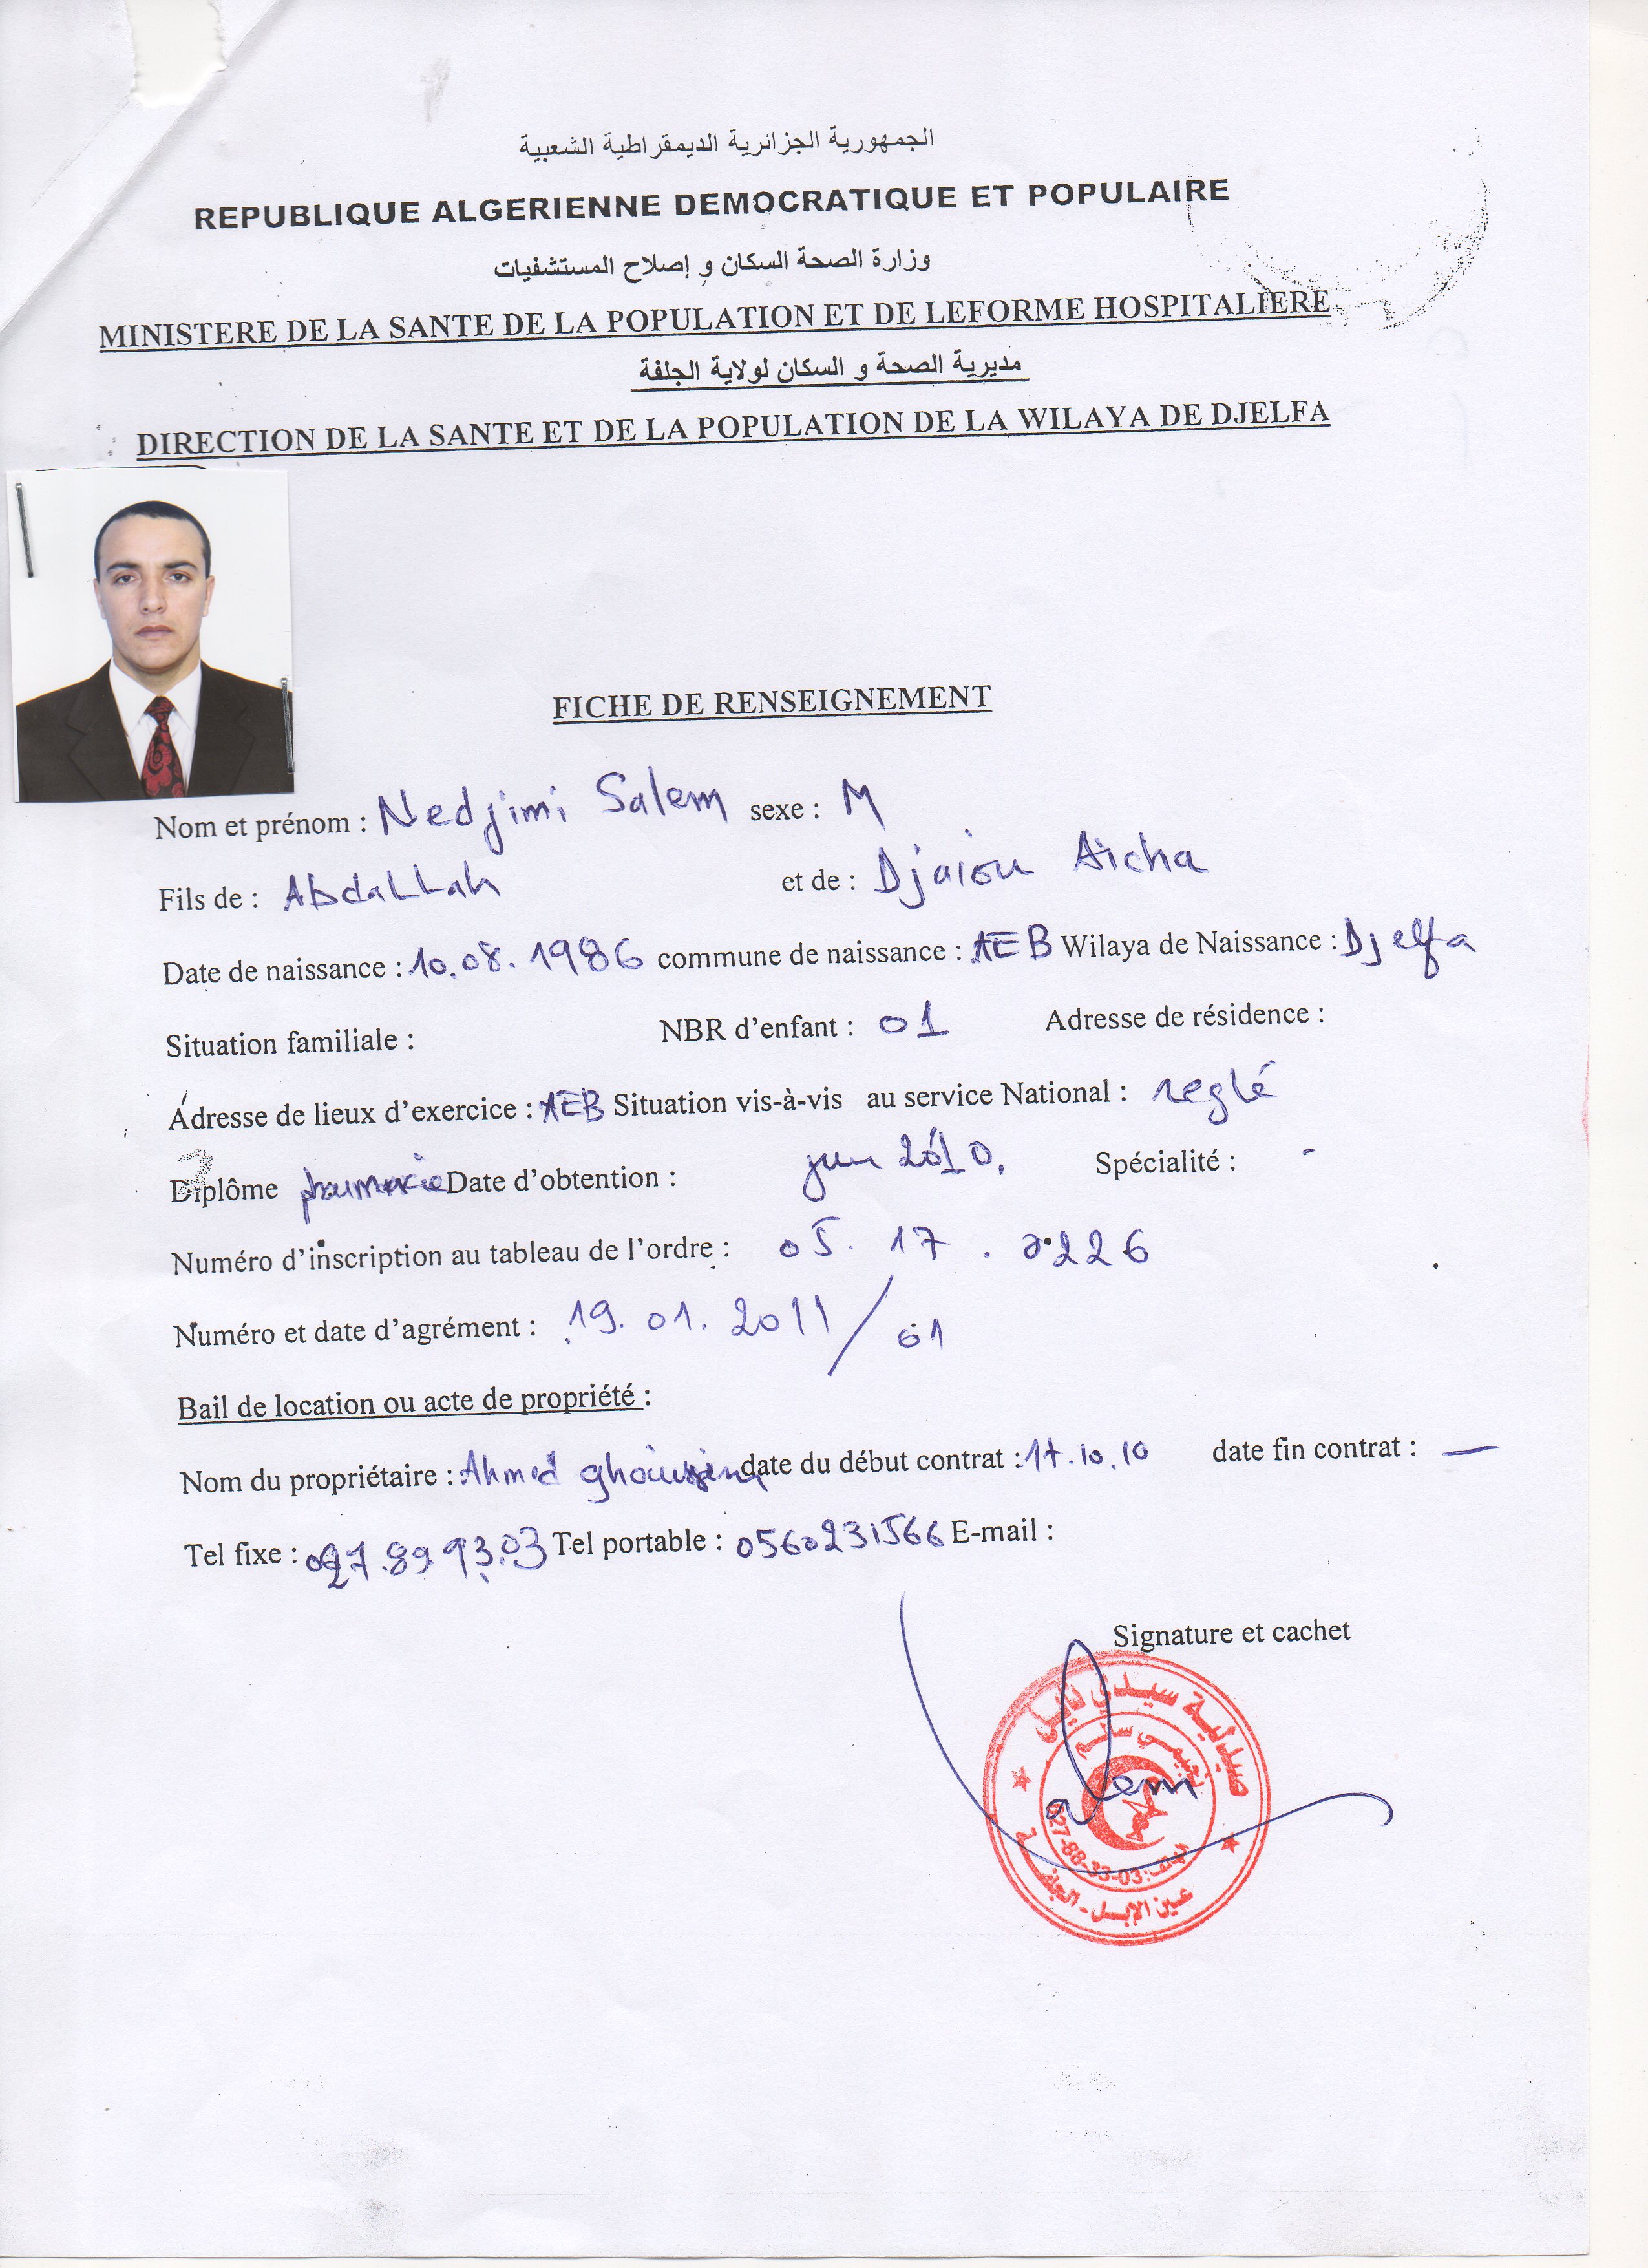 الجمهورية الجزائرية الديمقراطية الشعبية
REPUBLIQUE ALGERIENNE DEMOCRATIQUE ET POPULAIRE
وزارة الصحة السكان و إصلاح المستشفيات
MINISTERE DE LA SANTE DE LA POPULATION ET DE LEFORME HOSPITALIERE
مديرية الصحة و السكان لولاية الجلفة
DIRECTION DE LA SANTE ET DE LA POPULATION DE LA WILAYA DE DJELFA
FICHE DE RENSEIGNEMENT
Nom et prénom : Nedjimi Salem sexe : M
Fils de : Abdallah et de : Djaiou Aicha
Date de naissance : 10.08.1986 commune de naissance : AEB Wilaya de Naissance : Djelfa
Situation familiale : NBR d'enfant : 01 Adresse de résidence :
Adresse de lieux d'exercice : AEB Situation vis-à-vis au service National : reglé
Diplôme pharmacie Date d'obtention : juin 2010. Spécialité : -
Numéro d'inscription au tableau de l'ordre : 05. 17. 0226
Numéro et date d'agrément : 19.01.2011/01
Bail de location ou acte de propriété :
Nom du propriétaire : Ahmed date du début contrat : 17.10.10 date fin contrat : —
Tel fixe : 027.89.93.03 Tel portable : 0560231566 E-mail :
Signature et cachet
صيدلية سيدي نايل
نجيمي سالم
alem
الهاتف: 027-88-33-03
عين الإبل - الجلفة